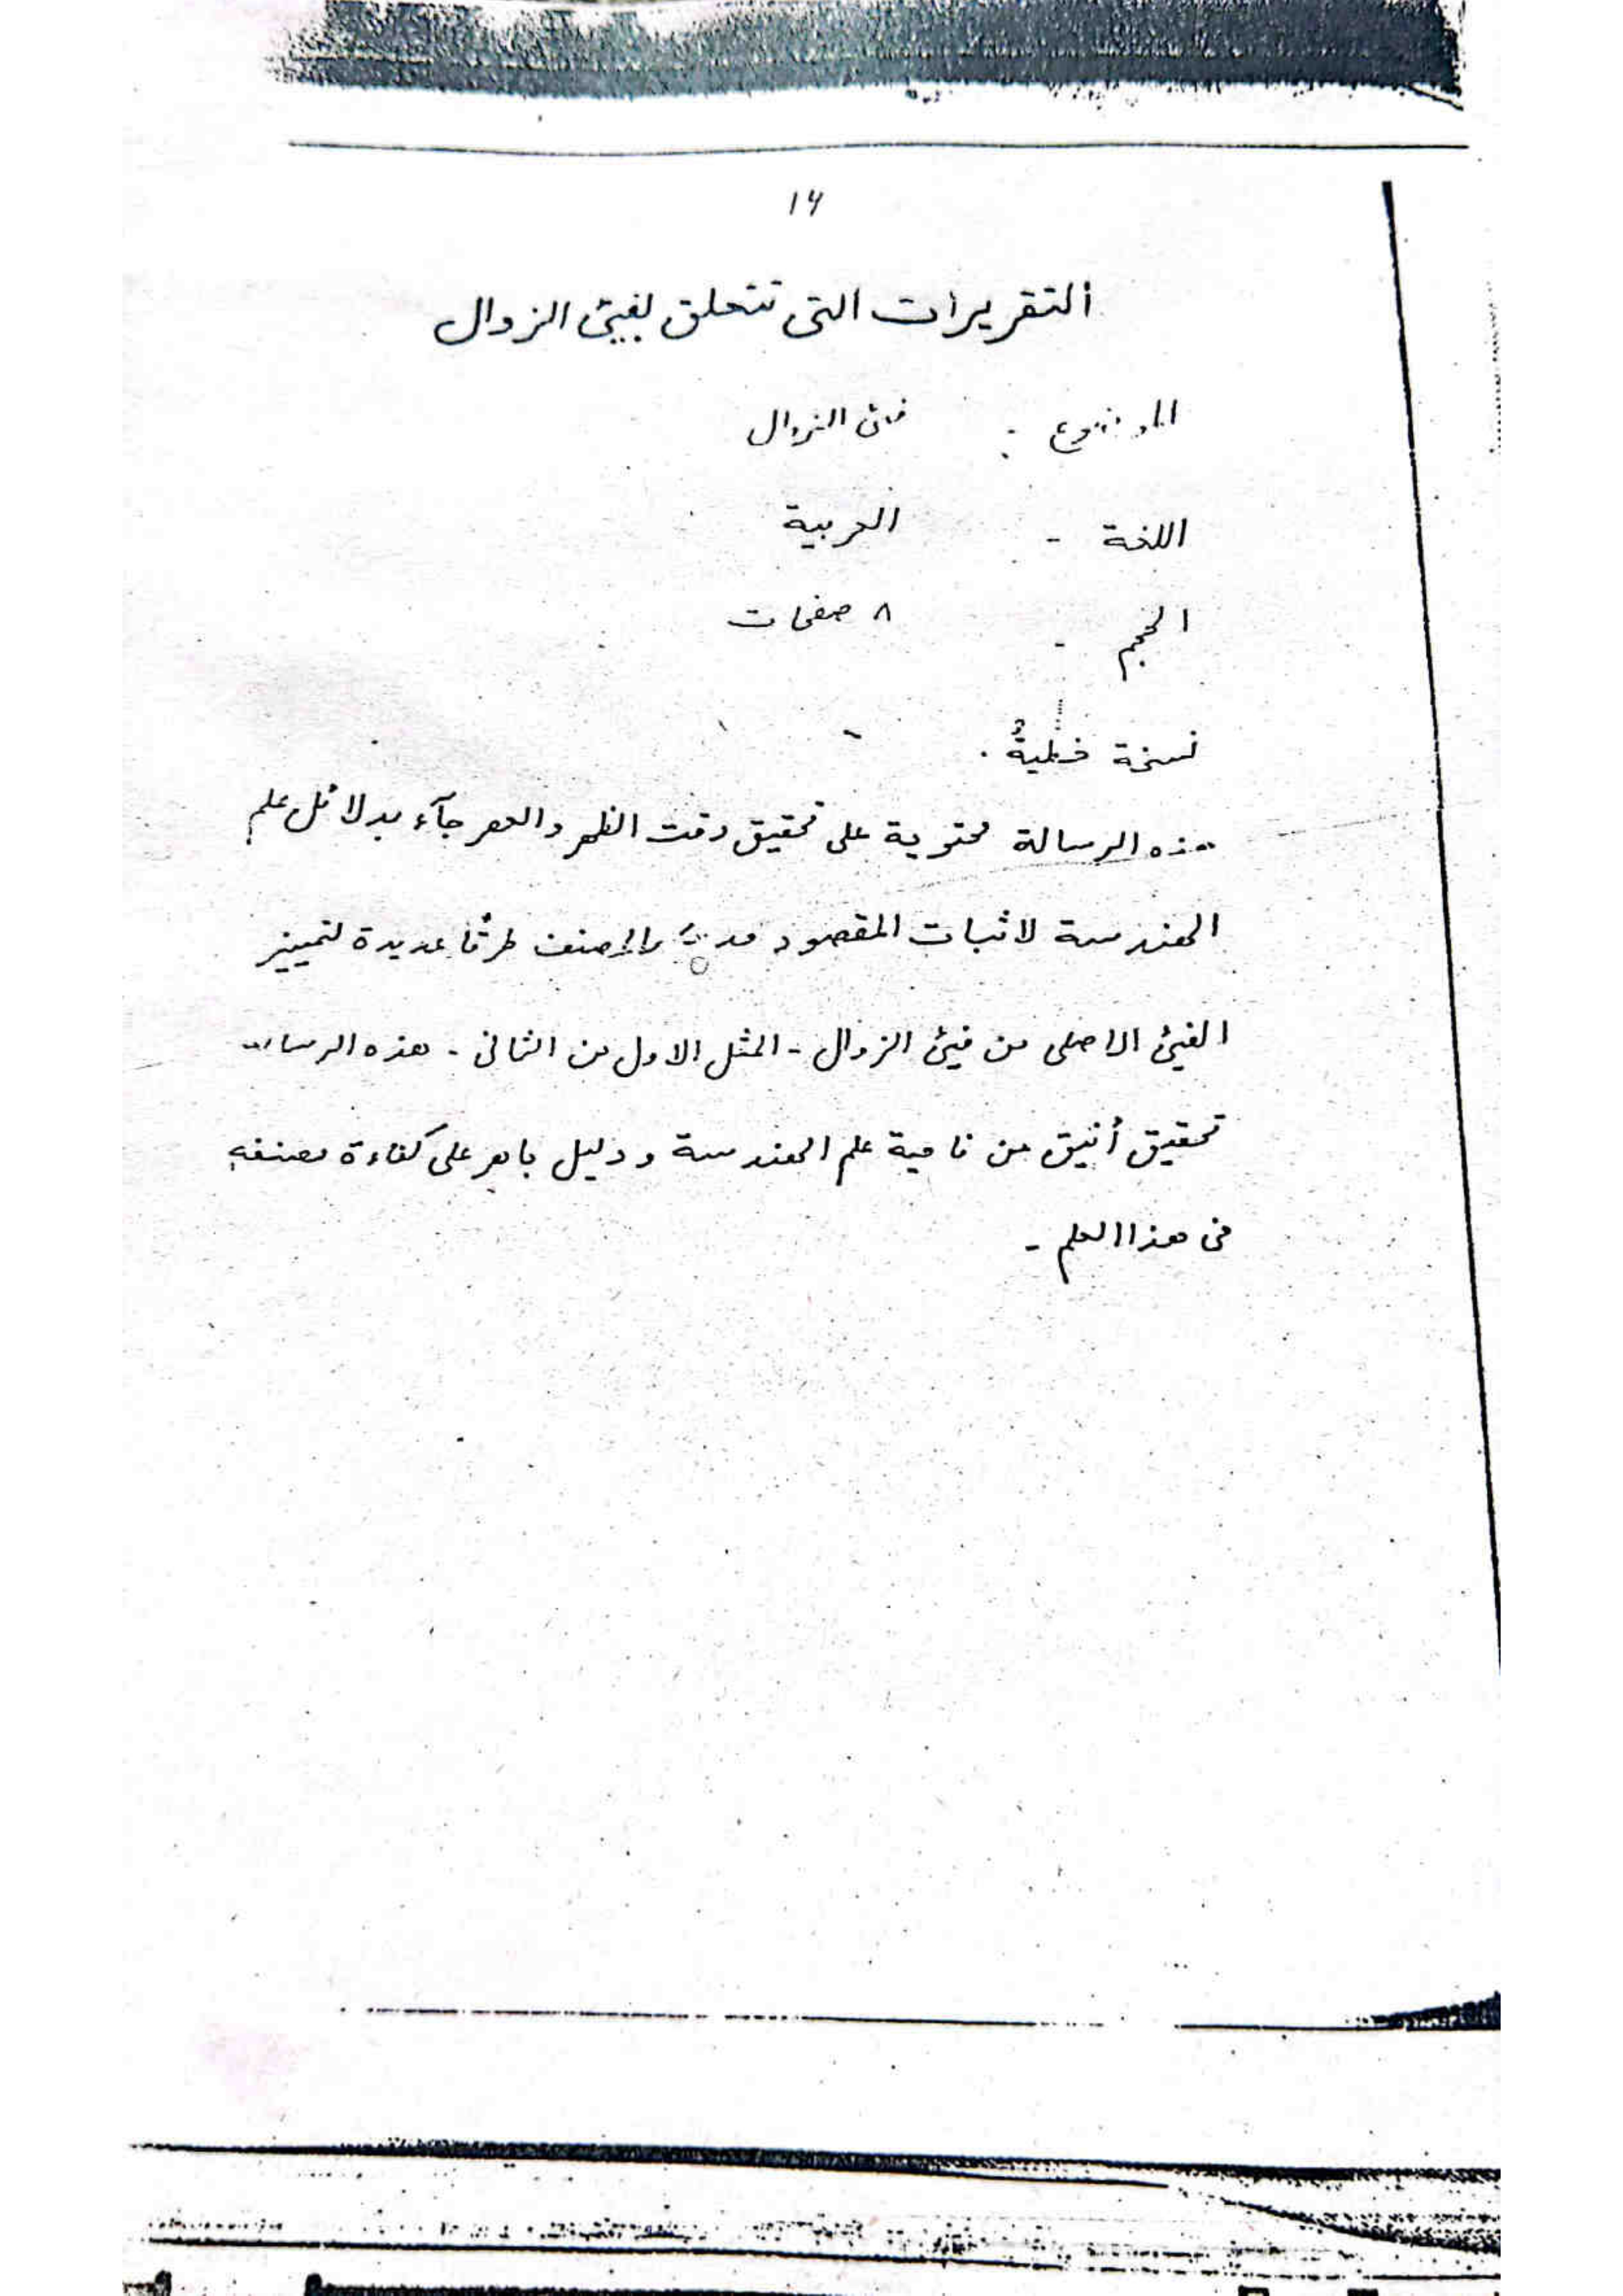 ۱۶
التقريرات التى تتعلق بفيئ الزوال
الموضوع : فئ الزوال
اللغة - العربية
الحجم - ٨ صفحات
نسخة خطية .
هذه الرسالة محتوية على تحقيق وقت الظهر والعصر جآء بدلائل علم
الهندسة لاثبات المقصود المصنف طرقا عديدة لتمييز
الفيئ الاصلى من فيئ الزوال - المثل الاول من الثانى - هذه الرسالة
تحقيق أنيق من ناحية علم الهندسة ودليل باهر على كفاءة مصنفه
فى هذا العلم -